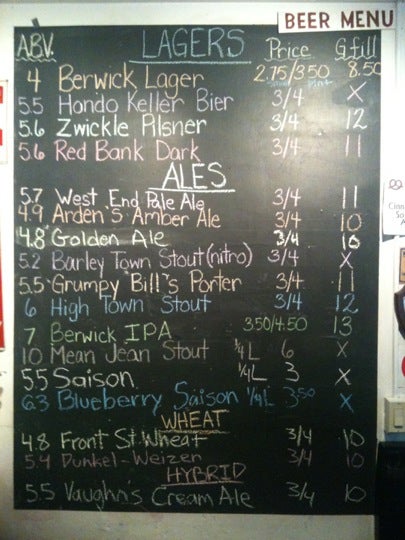 BEER MENU
ABV. LAGERS Price G.fill
4 Berwick Lager 2.75/3.50 8.50
small pint
5.5 Hondo Keller Bier 3/4 X
5.6 Zwickle Pilsner 3/4 12
5.6 Red Bank Dark 3/4 11
ALES
5.7 West End Pale Ale 3/4 11
4.9 Arden's Amber Ale 3/4 10
4.8 Golden Ale 3/4 10
5.2 Barley Town Stout (nitro) 3/4 X
5.5 Grumpy Bill's Porter 3/4 11
6 High Town Stout 3/4 12
7 Berwick IPA 3.50/4.50 13
10 Mean Jean Stout 1/4 L 6 X
5.5 Saison 1/4 L 3 X
6.3 Blueberry Saison 1/4 L 3.50 X
WHEAT
4.8 Front St. Wheat 3/4 10
5.4 Dunkel-Weizen 3/4 10
HYBRID
5.5 Vaughn's Cream Ale 3/4 10